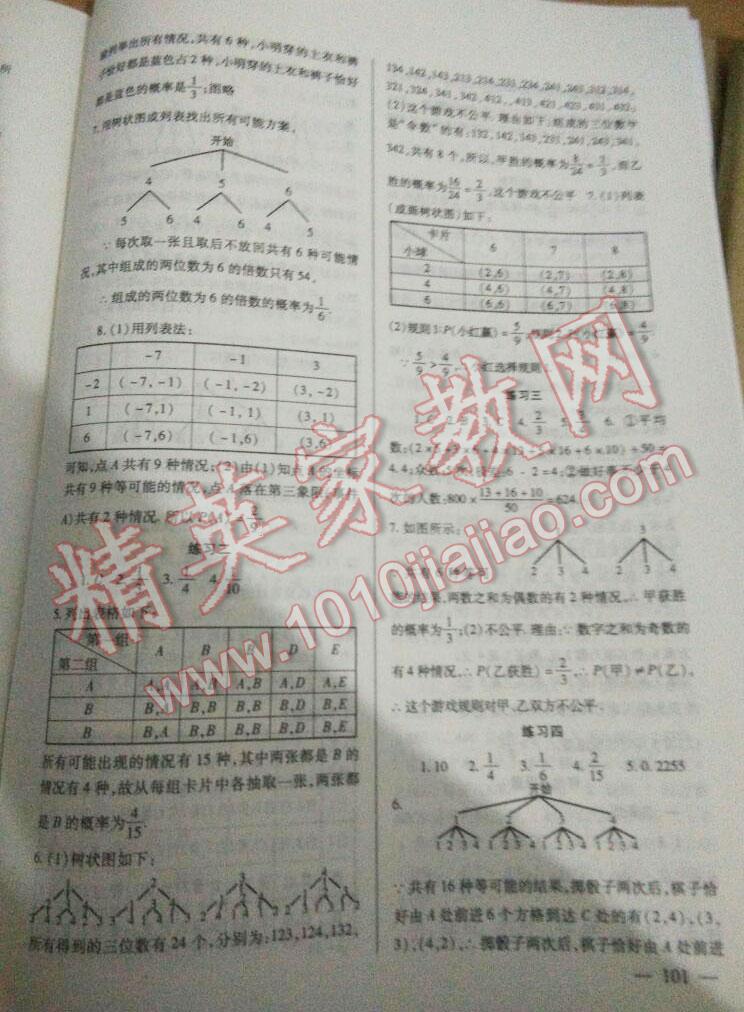 能列举出所有情况,共有6种,小明穿的上衣和裤
子恰好都是蓝色占2种,小明穿的上衣和裤子恰好
都是蓝色的概率是1/3;图略
7.用树状图或列表找出所有可能方案。
开始
4 5 6
5 6 4 6 4 5
∵每次取一张且取后不放回共有6种可能情
况,其中组成的两位数为6的倍数只有54,
∴组成的两位数为6的倍数的概率为1/6.
8.(1)用列表法:
-7 -1 3
-2 (-7,-1) (-1,-2) (3,-2)
1 (-7,1) (-1,1) (3,1)
6 (-7,6) (-1,6) (3,6)
可知,点A共有9种情况;(2)由(1)知点A的坐标
共有9种等可能的情况,点A落在第三象限(事件
A)共有2种情况.所以P(A)=2/9.
练习二
5.列出表格如下
第一组 A B B D E
第二组
A A,A A,B A,B A,D A,E
B B,A B,B B,B B,D B,E
B B,A B,B B,B B,D B,E
所有可能出现的情况有15种,其中两张都是B的
情况有4种,故从每组卡片中各抽取一张,两张都
是B的概率为4/15.
6.(1)树状图如下:
所有得到的三位数有24个,分别为:123,124,132,
134,142,143,213,214,231,234,241,243,312,314,
321,324,341,342,412,413,421,423,431,432;
(2)这个游戏不公平.理由如下:组成的三位数中
是“伞数”的有:132,142,143,231,241,243,341,
342,共有8个,所以,甲胜的概率为8/24=1/3,而乙
胜的概率为16/24=2/3,这个游戏不公平 7.(1)列表
(或画树状图)如下:
卡片 6 7 8
小球
2 (2,6) (2,7) (2,8)
4 (4,6) (4,7) (4,8)
6 (6,6) (6,7) (6,8)
(2)规则1:P(小红赢)=5/9,规则2:P(小红赢)=4/9.
∵5/9>4/9,∴小红选择规则1.
练习三
6.①平均
4.4;众数 6-2=4;②做好事不少于4
次的人数:800×(13+16+10)/50=624
7.如图所示:
2 3 4
共有6种等可
能的结果,两数之和为偶数的有2种情况,∴甲获胜
的概率为1/3;(2)不公平.理由:∵数字之和为奇数的
有4种情况,∴P(乙获胜)=2/3,∴P(甲)≠P(乙),
∴这个游戏规则对甲、乙双方不公平.
练习四
1.10 2.1/4 3.1/6 4.2/15 5.0.2255
开始
6.
1 2 3 4 1 2 3 4 1 2 3 4 1 2 3 4
∵共有16种等可能的结果,掷骰子两次后,棋子恰
好由A处前进6个方格到达C处的有(2,4),(3,
3),(4,2),∴掷骰子两次后,棋子恰好由A处前进
— 101 —
精英家教网
www.1010jiajiao.com